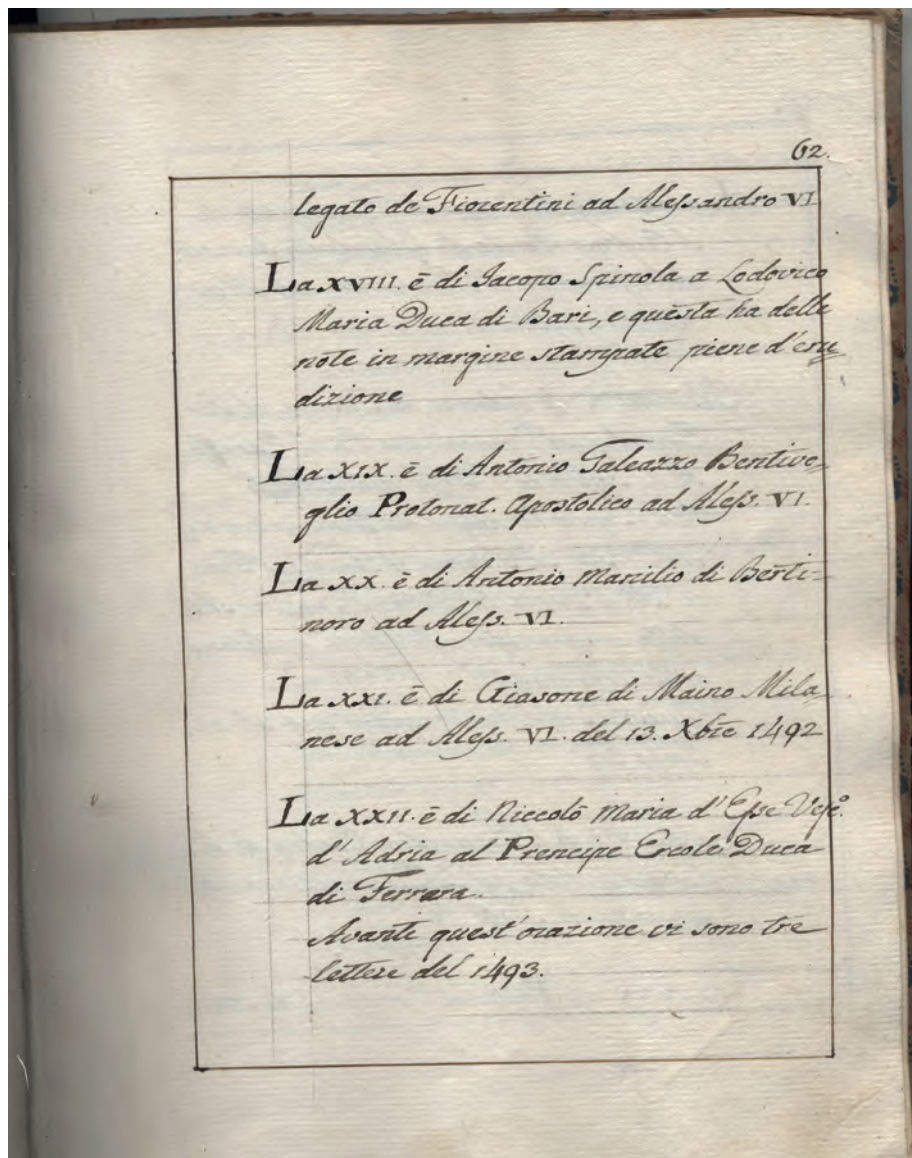 62.
legato de Fiorentini ad Alessandro VI
La XVIII. è di Jacopo Spinola a Lodovico
Maria Duca di Bari, e questa ha delle
note in margine stampate piene d'eru=
dizione
La XIX. è di Antonio Galeazzo Bentivo=
glio Protonat. Apostolico ad Aless. VI.
La XX. è di Antonio Mancilio di Berti=
noro ad Aless. VI.
La XXI. è di Giasone di Maino Mila
nese ad Aless. VI. del 13. Xbre 1492
La XXII. è di Niccolò Maria d'Esse Vesc.º
d'Adria al Prencipe Ercole Duca
di Ferrara.
Avanti quest'orazione vi sono tre
lettere del 1493.